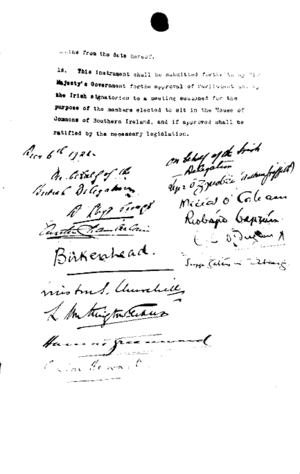 from the date hereof.
18. This instrument shall be submitted forthwith by His
Majesty's Government for the approval of Parliament and by
the Irish signatories to a meeting summoned for the
purpose of the members elected to sit in the House of
Commons of Southern Ireland, and if approved shall be
ratified by the necessary legislation.
Dec 6th 1921.
On behalf of the
British Delegation
D Lloyd George
Austen Chamberlain
Birkenhead.
Winston S. Churchill
L Worthington Evans
Hamar Greenwood
Gordon Hewart
On behalf of the Irish
Delegation
Art Ó Gríobhtha
Micheál Ó Coileain
Riobárd Bartún